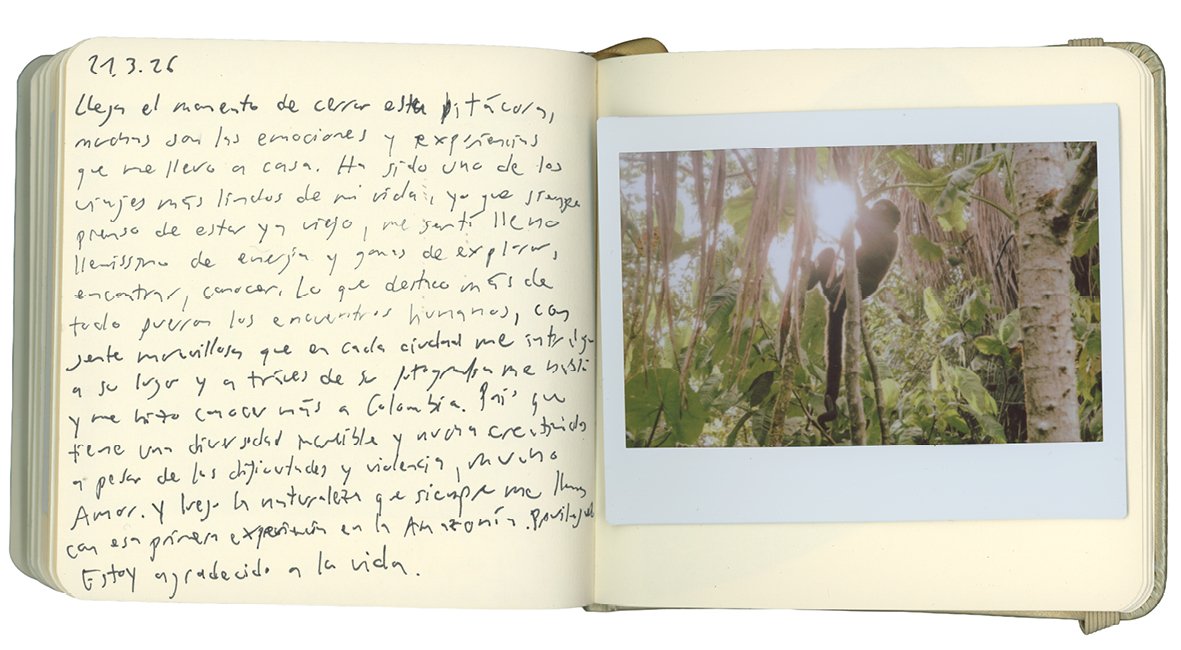 21.3.26
Llega el momento de cerrar esta bitácora,
muchas son las emociones y experiencias
que me llevo a casa. Ha sido uno de los
viajes más lindos de mi vida, yo que siempre
pienso de estar ya viejo, me sentí lleno
llenissimo de energía y ganas de explorar,
encontrar, conocer. Lo que destaco más de
todo fueron los encuentros humanos, con
gente maravillosa que en cada ciudad me
a su lugar y a través de su fotografía me
y me hizo conocer más a Colombia. País que
tiene una diversidad increíble y mucha creatividad
a pesar de las dificultades y violencia, mucho
Amor. Y luego la naturaleza que siempre me llena
con esa primera experiencia en la Amazonía.
Estoy agradecido a la vida.